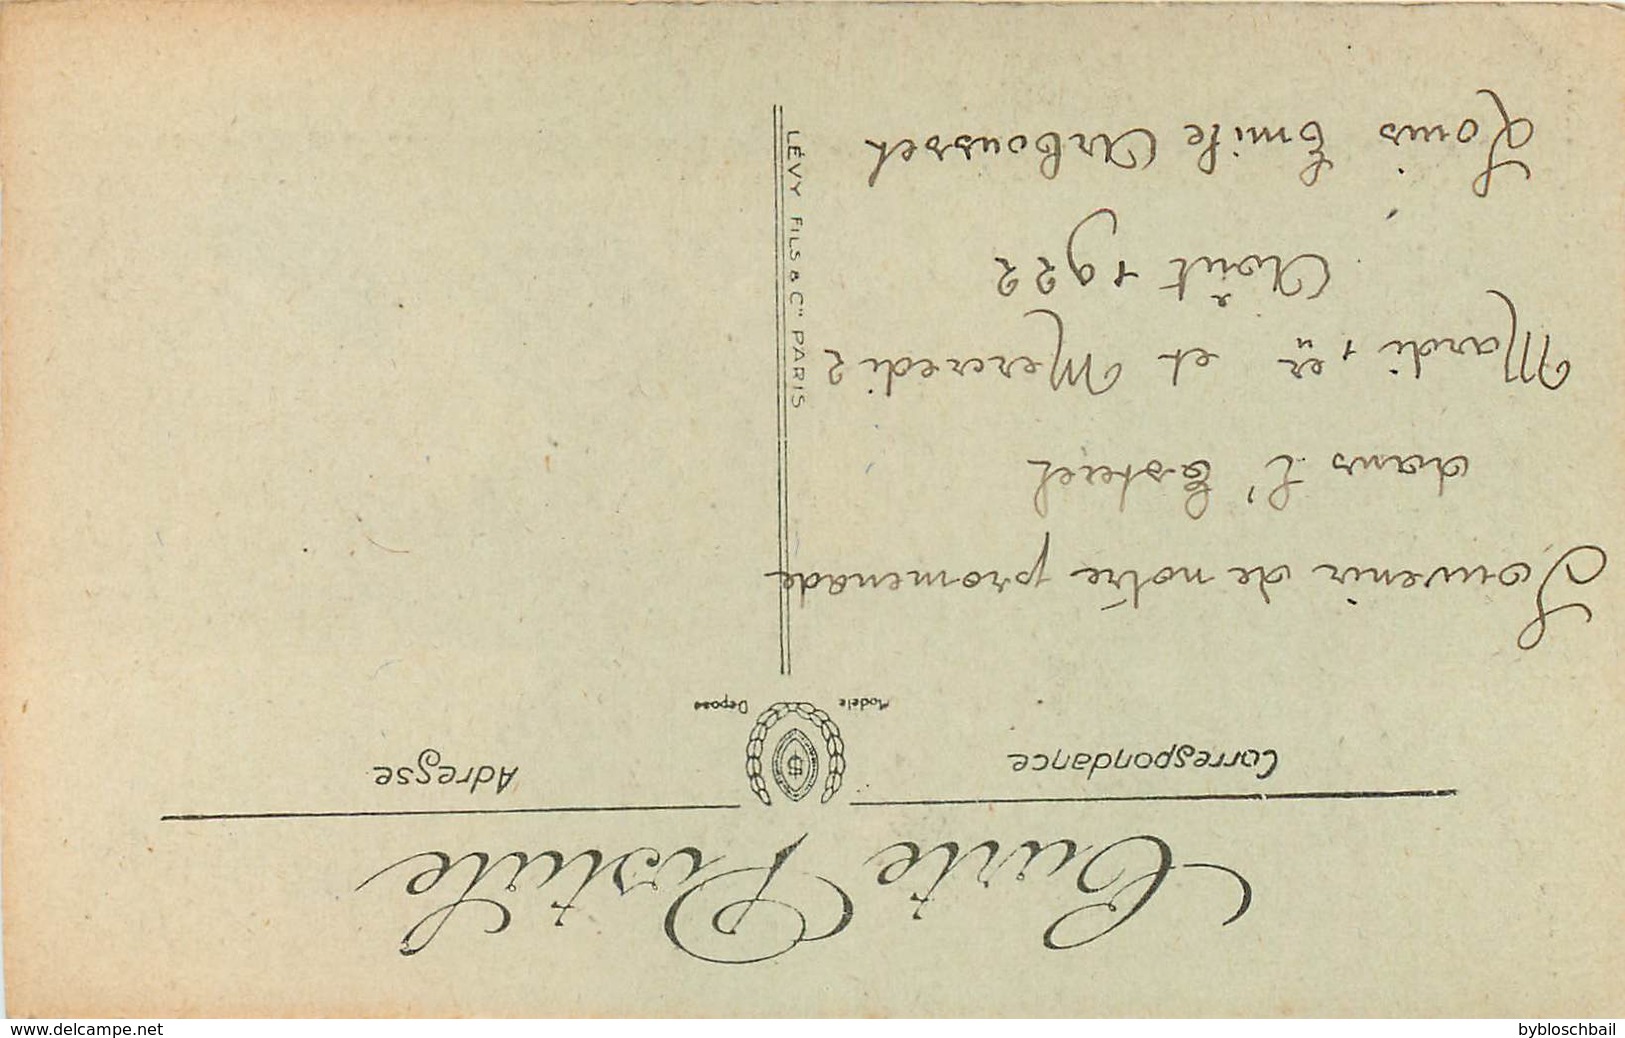 Carte Postale
Correspondance
Adresse
Modèle Déposé
Souvenir de notre promenade
dans l'Esterel
Mardi 1er et Mercredi 2
Août 1922
Louis Emile Arbousset
LÉVY FILS & Cie PARIS
www.delcampe.net
bybloschbail